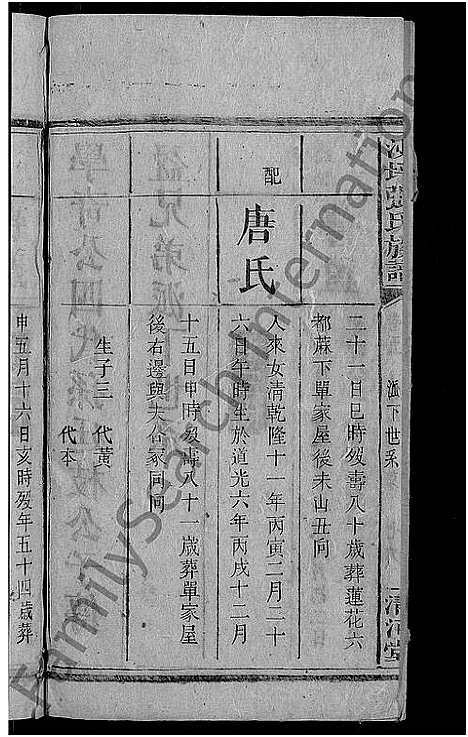 沙坪張氏族譜
派下世系
清河堂
二十一日巳時歿壽八十歲葬蓮花六
都蔴下單家屋後未山丑向
配
唐氏
人來女清乾隆十一年丙寅二月二十
六日午時生於道光六年丙戌十二月
十五日申時歿壽八十一歲葬單家屋
後右邊與夫公冢同向
生子三 代黃
代本
申五月十六日亥時歿年五十四歲葬
FamilySearch International